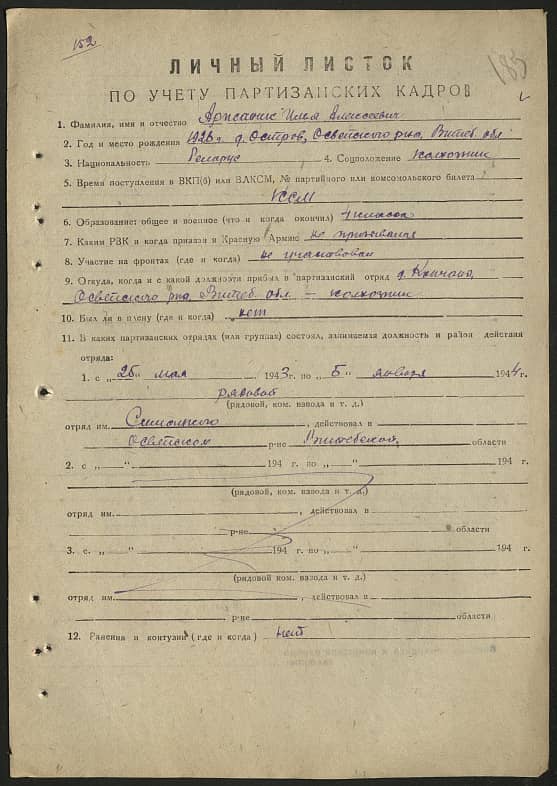 152
185
ЛИЧНЫЙ ЛИСТОК
ПО УЧЕТУ ПАРТИЗАНСКИХ КАДРОВ
1. Фамилия, имя и отчество Илья Алексеевич
2. Год и место рождения 1926 г. д. Остров, Освейского р-на, Витеб. обл.
3. Национальность Беларус 4. Соцположение колхозник
5. Время поступления в ВКП(б) или ВЛКСМ, № партийного или комсомольского билета
КСМ
6. Образование: общее и военное (что и когда окончил) 4 класса
7. Каким РВК и когда призван в Красную Армию не призывался
8. Участие на фронтах (где и когда) не участвовал
9. Откуда, когда и с какой должности прибыл в партизанский отряд д.
Освейского р-на, Витеб. обл. – колхозник
10. Был ли в плену (где и когда) нет
11. В каких партизанских отрядах (или группах) состоял, занимаемая должность и район действия
отряда:
1. с „25" мая 1943 г. по „5" января 1944 г.
рядовой
(рядовой, ком. взвода и т. д.)
отряд им. , действовал в
Освейском р-не Витебской области
2. с „ " 194 г. по „ " 194 г.
(рядовой, ком. взвода и т. д.)
отряд им. , действовал в
р-не области
3. с. „ " 194 г. по „ " 194 г.
(рядовой, ком. взвода и т. д.)
отряд им. , действовал в
р-не области
12. Ранения и контузии (где и когда) нет